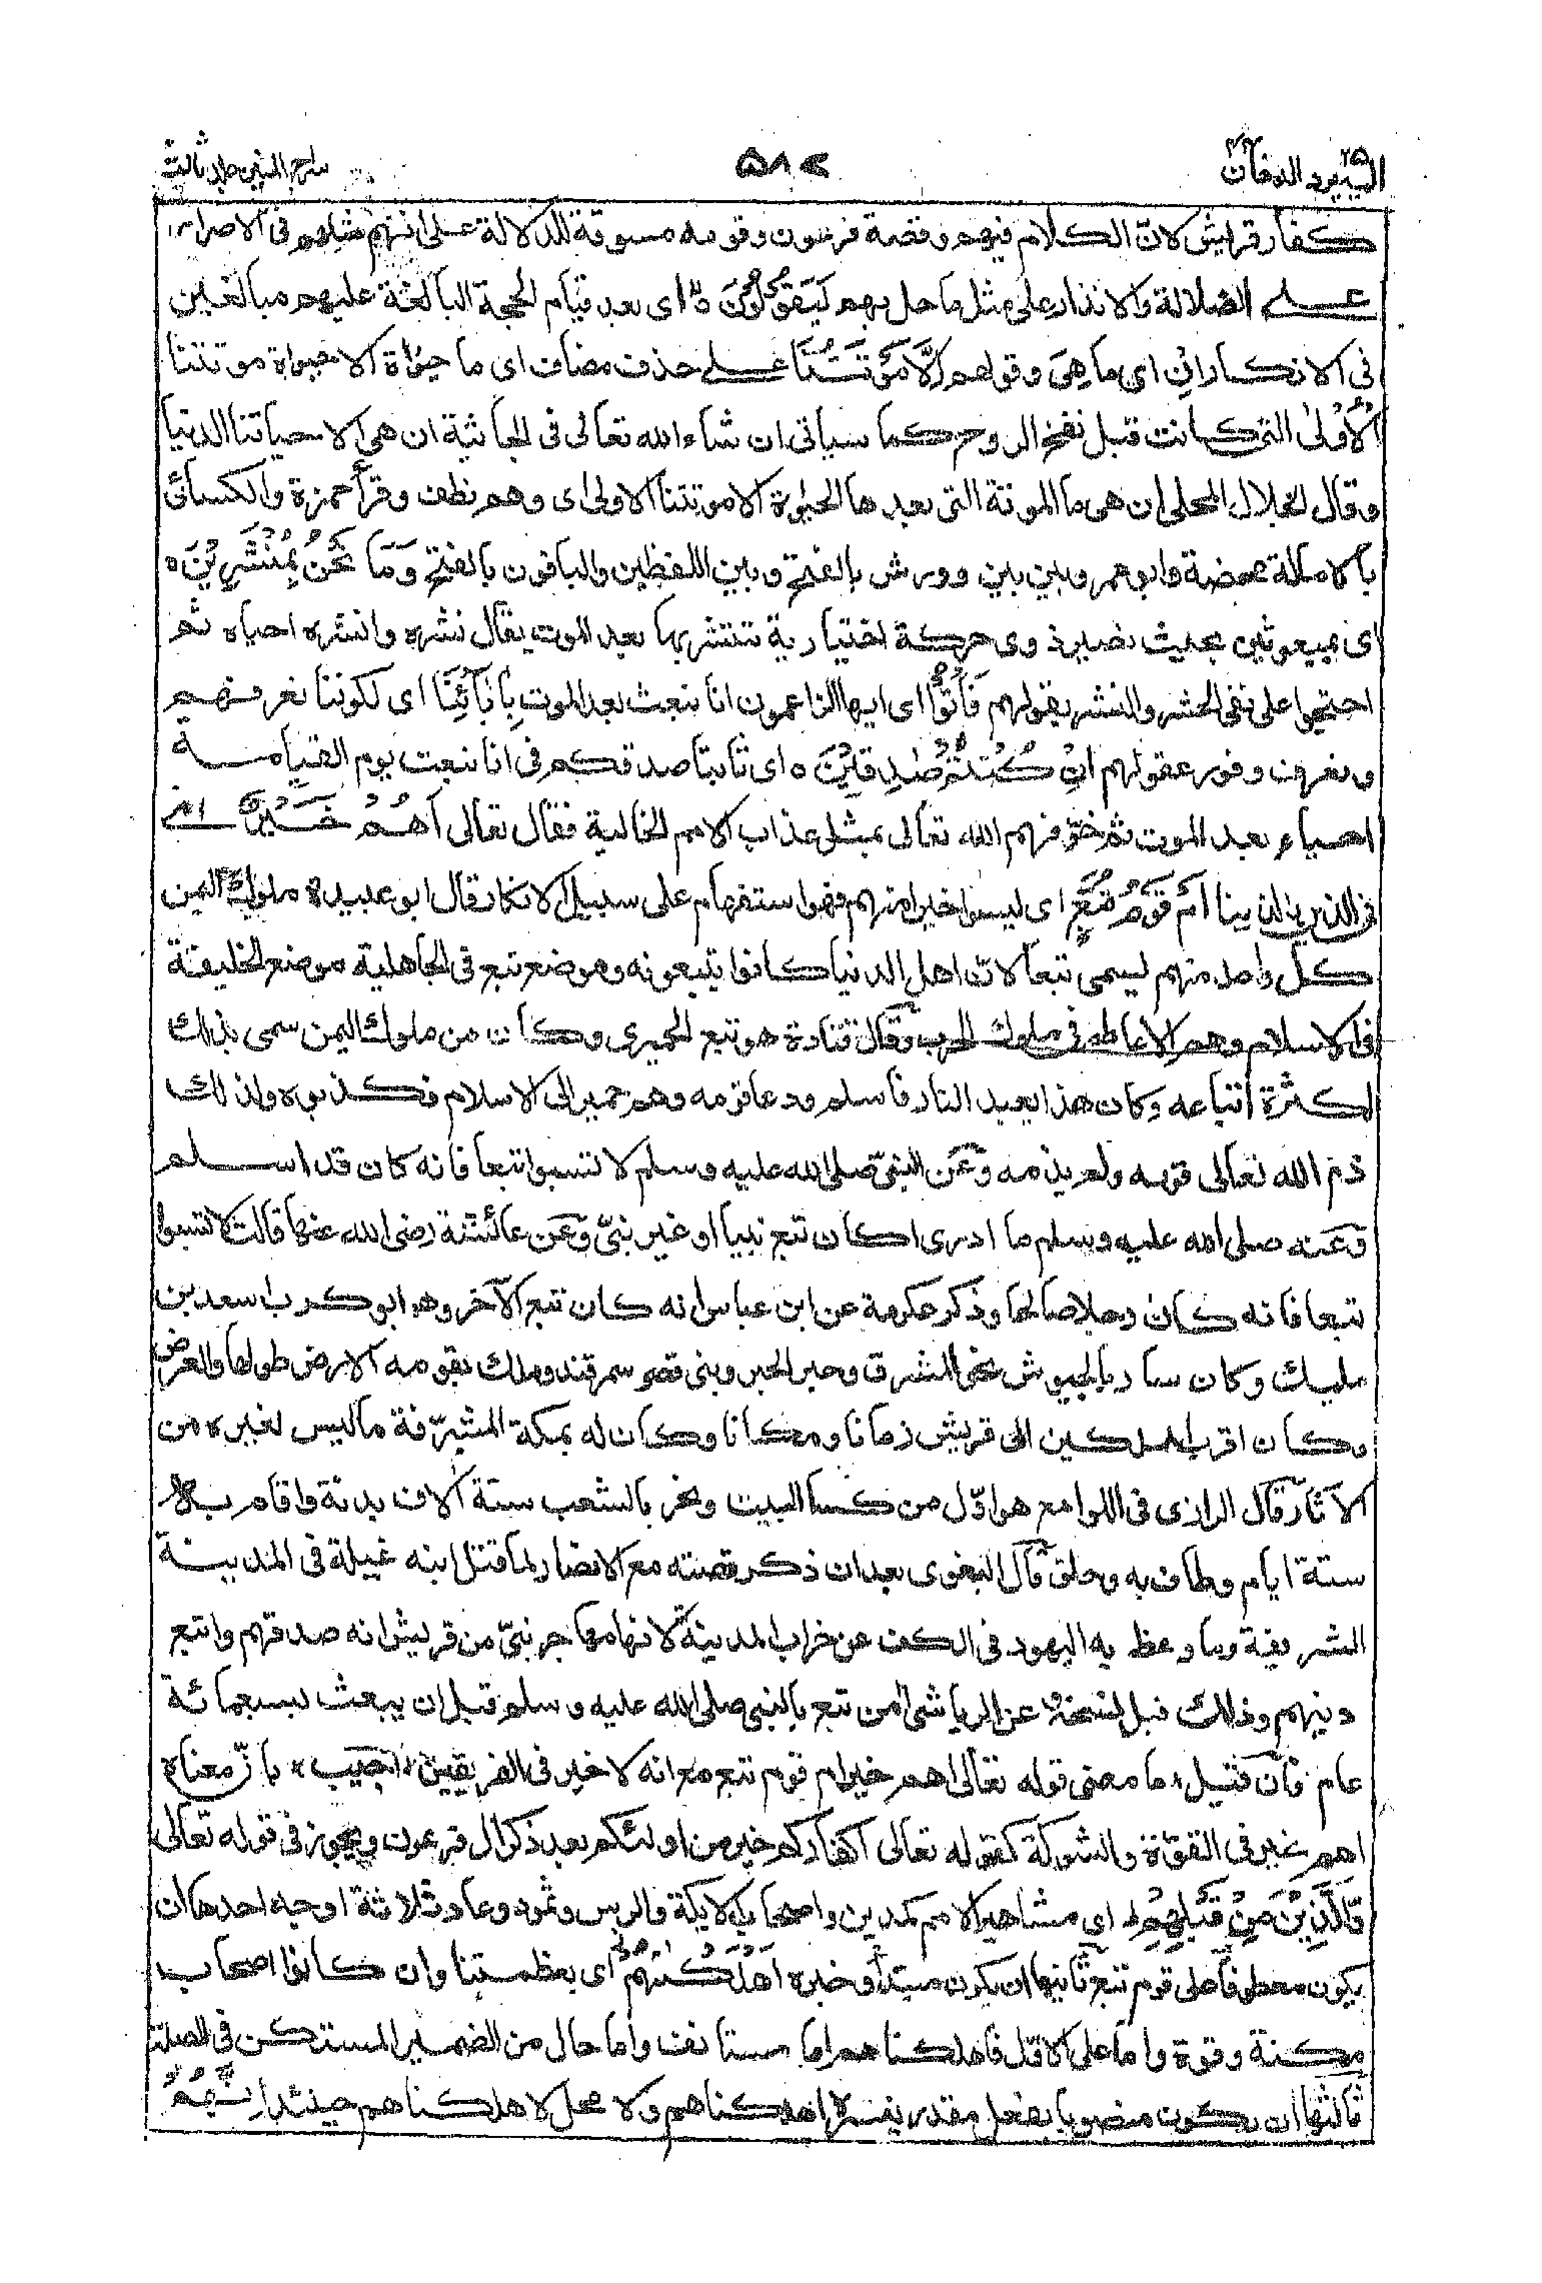 اليه يرد الدخان ٥٨٢ سراج المنير جلد ثالث
كفار قريش لانّ الكلام فيهم وقصة فرعون وقومه مسوقة للدلالة على انهم مثلهم فى الاصرار
على الضلالة والانذار على مثل ما حل بهم لَيَقُوْلُوْنَ ۙ اى بعد قيام الحجة البالغة عليهم مبالغين
فى الانكار اِنْ اى ما هِىَ وقولهم اِلَّا مَوْتَتُنَا على حذف مضاف اى ما حيٰوة الا حيٰوة موتتنا
الْاُوْلٰى التى كانت قبل نفخ الروح كما سياتى ان شاء الله تعالى فى الجاثية ان هى الا حياتنا الدنيا
وقال الجلال المحلى ان هى ما الموتة التى بعدها الحيٰوة الا موتتنا الاولى اى وهم نطف وقرأ حمزة والكسائى
بالامالة محضة وابو عمرو بين بين وورش بالفتح وبين اللفظين والباقون بالفتح وَمَا نَحْنُ بِمُنْشَرِيْنَ ه
اى بمبعوثين بحيث نصير ذوى حركة اختيارية ننتشر بها بعد الموت يقال نشره وانشره احياه ثم
احتجوا على نفى الحشر والنشر بقولهم فَأْتُوْا اى ايها الزاعمون انا نبعث بعد الموت بِاٰبَآئِنَا اى لكوننا نعرفهم
ونعرف وفور عقولهم اِنْ كُنْتُمْ صٰدِقِيْنَ ه اى ثابتا صدقكم فى انا نبعث يوم القيامة
احياء بعد الموت ثم خوّفهم الله تعالى بمثل عذاب الامم الخالية فقال تعالى اَهُمْ خَيْرٌ اى
فى الدين والدنيا اَمْ قَوْمُ تُبَّعٍ اى ليسوا خيرا منهم فهو استفهام على سبيل الانكار قال ابو عبيدة ملوك اليمن
كل واحد منهم يسمى تبعا لانّ اهل الدنيا كانوا يتبعونه وموضع تبع فى الجاهلية موضع الخليفة
فى الاسلام وهم الاعاظم فى ملوك العرب وقال قتادة هو تبع الحميرى وكان من ملوك اليمن سمى بذلك
لكثرة اتباعه وكان هذا يعبد النار فاسلم ودعا قومه وهم حمير الى الاسلام فكذبوه ولذلك
ذم الله تعالى قومه ولم يذمه وعن النبىّ صلى الله عليه وسلم لا تسبوا تبعا فانه كان قد اسلم
وعنه صلى الله عليه وسلم ما ادرى اكان تبع نبيا او غير نبىّ وعن عائشة رضى الله عنها قالت لا تسبوا
تبعا فانه كان رجلا صالحا وذكر عكرمة عن ابن عباس انه كان تبع الآخر وهو ابو كرب اسعد بن
مليك وكان سار بالجيوش نحو المشرق وحير الحير وبنى قصر سمرقند وملك بقومه الارض طولها والعرض
وكان اقرب المهلكين الى قريش زمانا ومكانا وكان له بمكة المشرّفة ما ليس لغيره من
الآثار قال الرازى فى اللوامع هو اوّل من كسا البيت ونحر بالشعب ستة آلاف بدنة واقام به
ستة ايام وطاف به وحلق قال البغوى بعد ان ذكر قصته مع الانصار لما قتل ابنه غيلة فى المدينة
الشريفة وما وعظه به اليهود فى الكف عن خراب المدينة لانها مهاجر نبىّ من قريش انه صدقهم واتبع
دينهم وذلك قبل نسخه عن الرياشى آمن تبع بالنبى صلى الله عليه وسلم قبل ان يبعث بسبعمائة
عام فان قيل ما معنى قوله تعالى اهم خير ام قوم تبع مع انه لا خير فى الفريقين اجيب بانّ معناه
اهم خير فى القوّة والشوكة كقوله تعالى اكفاركم خير من اولئكم بعد ذكر آل فرعون ويجوز فى قوله تعالى
وَالَّذِيْنَ مِنْ قَبْلِهِمْ ط اى مشاهير الامم كمدين واصحاب الايكة والرس وثمود وعاد ثلاثة اوجه احدها ان
يكون معطوفا على قوم تبع ثانيها ان يكون مبتدأ وخبره اَهْلَكْنٰهُمْ اى بعظمتنا وان كانوا اصحاب
مكنة وقوة واما على الاوّل فاهلكناهم اما مستانف واما حال من الضمير المستكن فى الصلة
ثالثها ان يكون منصوبا بفعل مقدر يفسره اهلكناهم ولا محل لاهلكناهم حينئذ اِنَّهُمْ